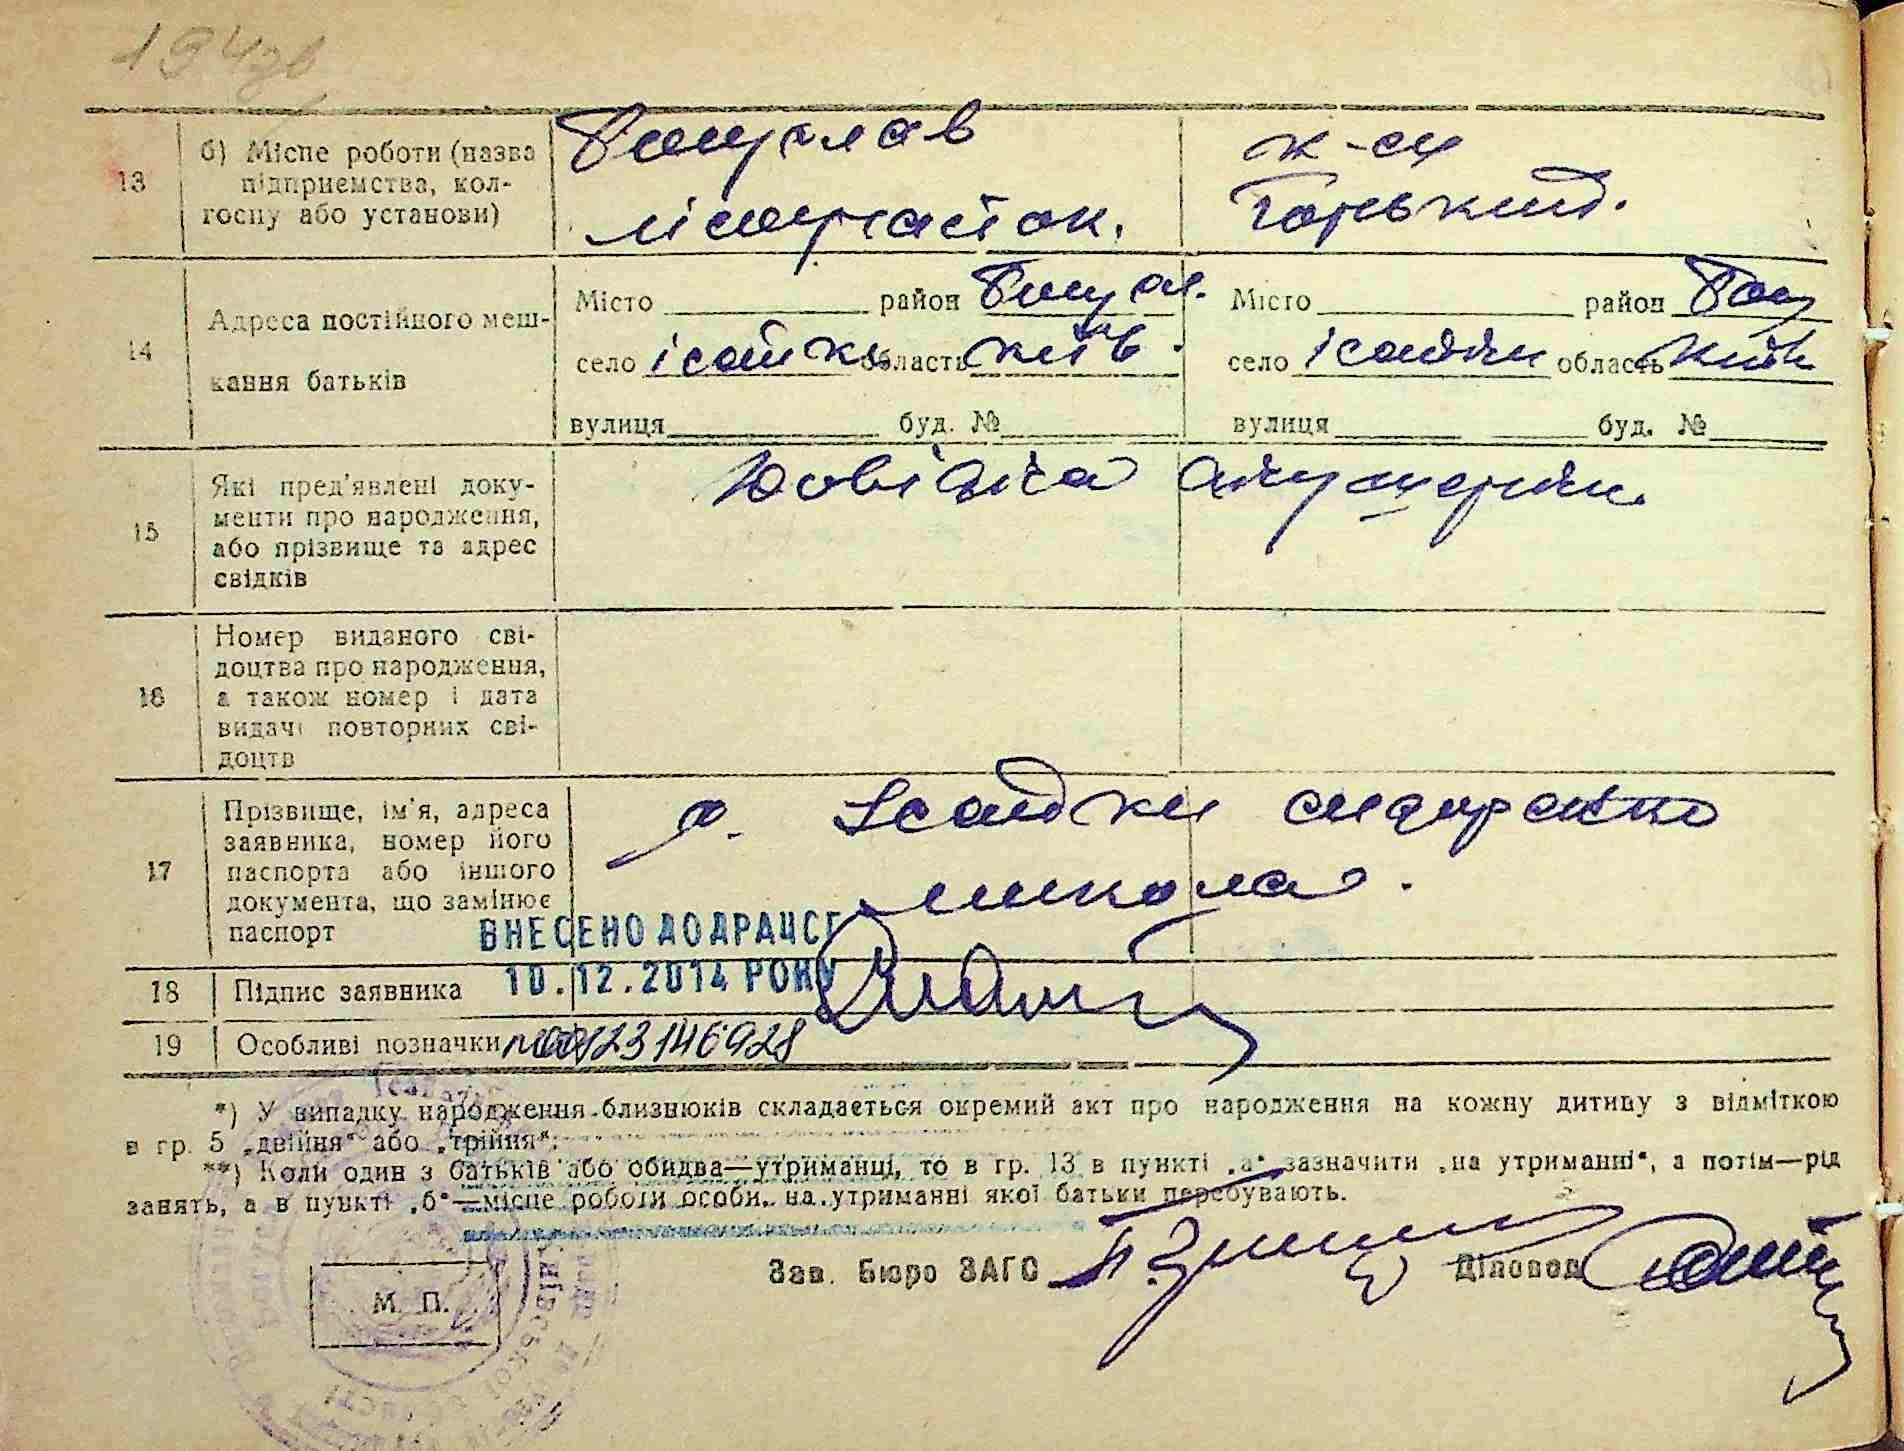 194зв
13 б) Місце роботи (назва підприємства, колгоспу або установи)
Богуслав
к-сп
Горький.
14 Адреса постійного мешкання батьків
Місто район Богусл.
село Ісайки область Київ.
вулиця буд. №
Місто район Бог
село Ісайки область Київ
вулиця буд. №
15 Які пред'явлені документи про народження, або прізвище та адрес свідків
Довідка акушерки
16 Номер виданого свідоцтва про народження, а також номер і дата видачі повторних свідоцтв
17 Прізвище, ім'я, адреса заявника, номер його паспорта або іншого документа, що замінює паспорт
Ісайки Сидоренко
Микола.
ВНЕСЕНО ДО ДРАЦСГ
10.12.2014 РОКУ
18 Підпис заявника
19 Особливі позначки 00123146928
*) У випадку народження близнюків складається окремий акт про народження на кожну дитину з відміткою
в гр. 5 „двійня“ або „трійня“.
**) Коли один з батьків або обидва—утриманці, то в гр. 13 в пункті „а“ зазначити „на утриманні“, а потім—рід
занять, а в пункті „б“—місце роботи особи, на утриманні якої батьки перебувають.
Зав. Бюро ЗАГС
Діловод
М. П.